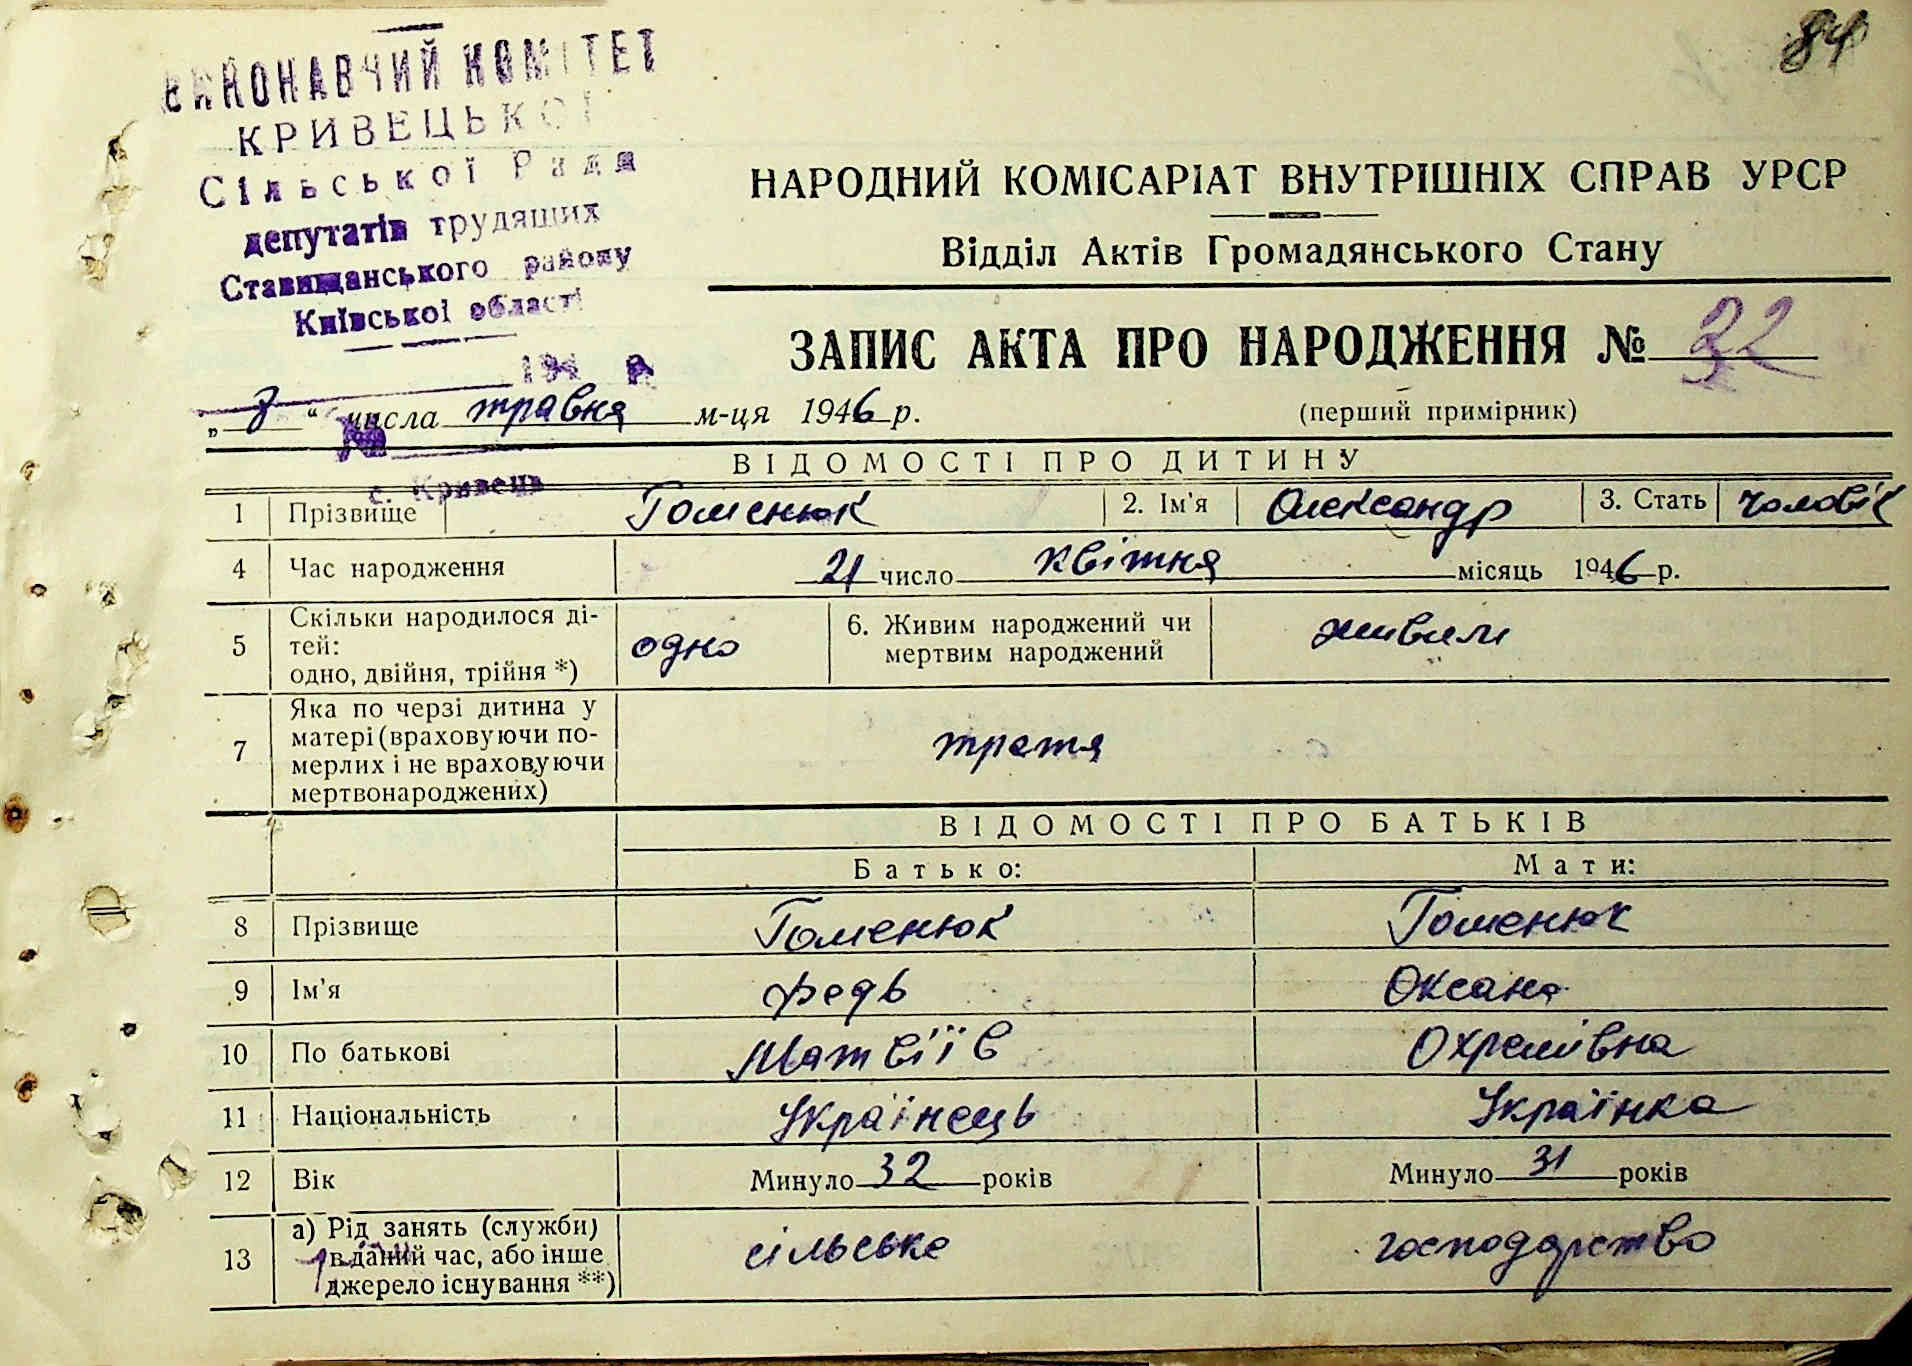 84
ВИКОНАВЧИЙ КОМІТЕТ
КРИВЕЦЬКОЇ
Сільської Рада
депутатів трудящих
Ставищанського району
Київської області
194 р
№
с. Кривець
НАРОДНИЙ КОМІСАРІАТ ВНУТРІШНІХ СПРАВ УРСР
Відділ Актів Громадянського Стану
ЗАПИС АКТА ПРО НАРОДЖЕННЯ № 32
„ 8 “ числа травня м-ця 1946 р.
(перший примірник)
ВІДОМОСТІ ПРО ДИТИНУ
1 Прізвище Гоменюк 2. Ім'я Олександр 3. Стать чоловік
4 Час народження 21 число квітня місяць 1946 р.
5 Скільки народилося ді-
тей:
одно, двійня, трійня *) одно
6. Живим народжений чи
мертвим народжений живим
7 Яка по черзі дитина у
матері (враховуючи по-
мерлих і не враховуючи
мертвонароджених) третя
ВІДОМОСТІ ПРО БАТЬКІВ
Батько: Мати:
8 Прізвище Гоменюк Гоменюк
9 Ім'я Федь Оксана
10 По батькові Матвіїв Охремівна
11 Національність Українець Українка
12 Вік Минуло 32 років Минуло 31 років
13 а) Рід занять (служби)
в даний час, або інше
джерело існування **) сільське господарство